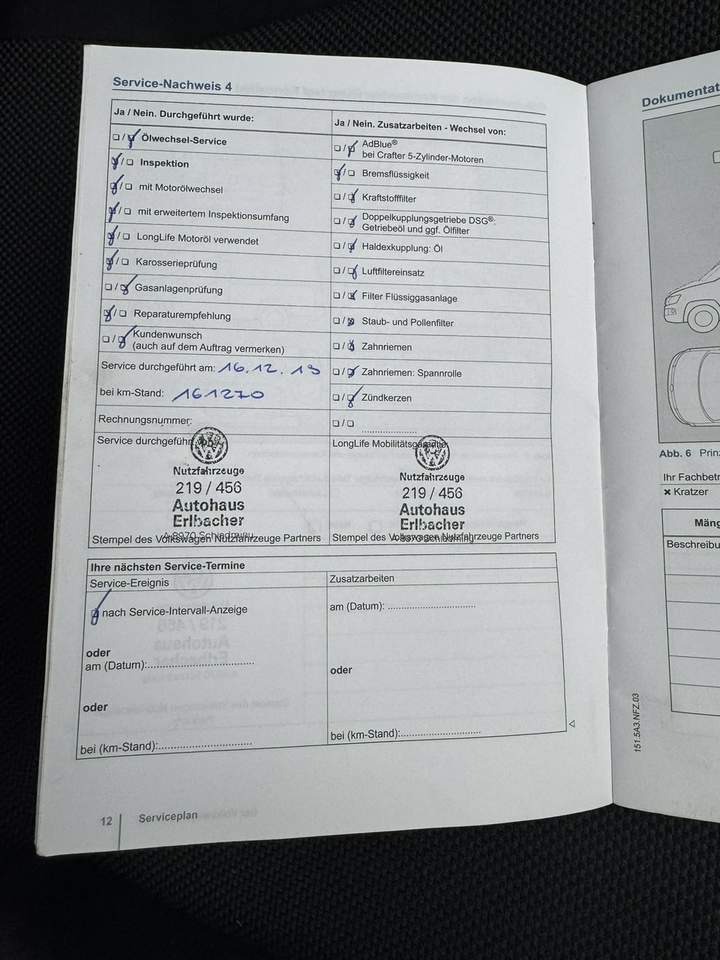 Service-Nachweis 4
Ja / Nein. Durchgeführt wurde:
❏ / ❏ Ölwechsel-Service
❏ / ❏ Inspektion
❏ / ❏ mit Motorölwechsel
❏ / ❏ mit erweitertem Inspektionsumfang
❏ / ❏ LongLife Motoröl verwendet
❏ / ❏ Karosserieprüfung
❏ / ❏ Gasanlagenprüfung
❏ / ❏ Reparaturempfehlung
❏ / ❏ Kundenwunsch
(auch auf dem Auftrag vermerken)
Service durchgeführt am: 16.12.19
bei km-Stand: 161270
Rechnungsnummer:
Service durchgeführt von:
Nutzfahrzeuge
219 / 456
Autohaus
Erlbacher
A-8970 Schladming
Stempel des Volkswagen Nutzfahrzeuge Partners
Ja / Nein. Zusatzarbeiten - Wechsel von:
❏ / ❏ AdBlue®
bei Crafter 5-Zylinder-Motoren
❏ / ❏ Bremsflüssigkeit
❏ / ❏ Kraftstofffilter
❏ / ❏ Doppelkupplungsgetriebe DSG®:
Getriebeöl und ggf. Ölfilter
❏ / ❏ Haldexkupplung: Öl
❏ / ❏ Luftfiltereinsatz
❏ / ❏ Filter Flüssiggasanlage
❏ / ❏ Staub- und Pollenfilter
❏ / ❏ Zahnriemen
❏ / ❏ Zahnriemen: Spannrolle
❏ / ❏ Zündkerzen
❏ / ❏ ....................
LongLife Mobilitätsgarantie
Nutzfahrzeuge
219 / 456
Autohaus
Erlbacher
A-8970 Schladming
Stempel des Volkswagen Nutzfahrzeuge Partners
Ihre nächsten Service-Termine
Service-Ereignis
❏ nach Service-Intervall-Anzeige
oder
am (Datum):..............................
oder
bei (km-Stand):..........................
Zusatzarbeiten
am (Datum): .........................
oder
bei (km-Stand):.......................
12
Serviceplan
Dokumentat
Abb. 6 Prinz
Ihr Fachbetr
× Kratzer
Mäng
Beschreibu
151.5A3.NFZ.03